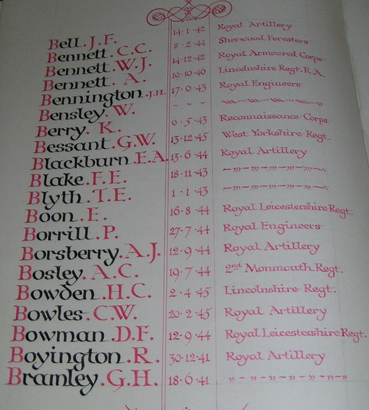 Bell. J.F. 14.1.42 Royal Artillery
Bennett. C.C. 8.2.44 Sherwood Foresters
Bennett. W.J. 14.12.42 Royal Armoured Corps
Bennett. A. 10.10.40 Lincolnshire Regt. R.A.
Bennington. J.H. Royal Engineers
Bensley. W. " " " " " " "
Berry. K. 6.5.43 Reconnaissance Corps
Bessant. G.W. 13.12.45 West Yorkshire Regt.
Blackburn. E.A. 13.6.44 Royal Artillery
Blake. F.E. 18.11.43 " " " "
Blyth. T.E. 1.1.43 " " " "
Boon. E. 16.8.44 Royal Leicestershire Regt.
Borrill. P. 27.7.44 Royal Engineers
Borsberry. A.J. 12.9.44 Royal Artillery
Bosley. A.C. 19.7.44 2nd Monmouth Regt.
Bowden. H.C. 2.4.45 Lincolnshire Regt.
Bowles. C.W. 20.2.45 Royal Artillery
Bowman. D.F. 12.9.44 Royal Leicestershire Regt.
Boyington. R. 30.12.41 Royal Artillery
Bramley. G.H. 18.6.41 " " " "